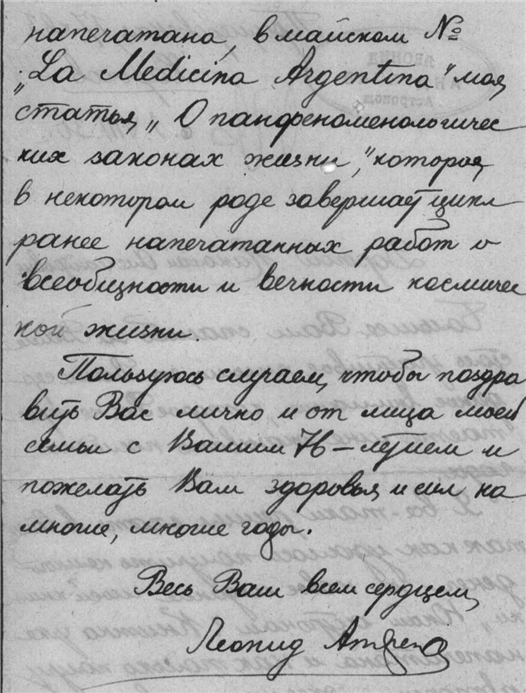 напечатана, в майском №
„La Medicina Argentina" моя
статья „О панфеноменологичес
ких законах жизни", которая
в некотором роде завершает цикл
ранее напечатанных работ о
всеобщности и вечности космичес
кой жизни.
Пользуюсь случаем, чтобы поздра
вить Вас лично и от лица моей
семьи с Вашим 76-летием и
пожелать Вам здоровья и сил на
многие, многие годы.
Весь Ваш всем сердцем,
Леонид